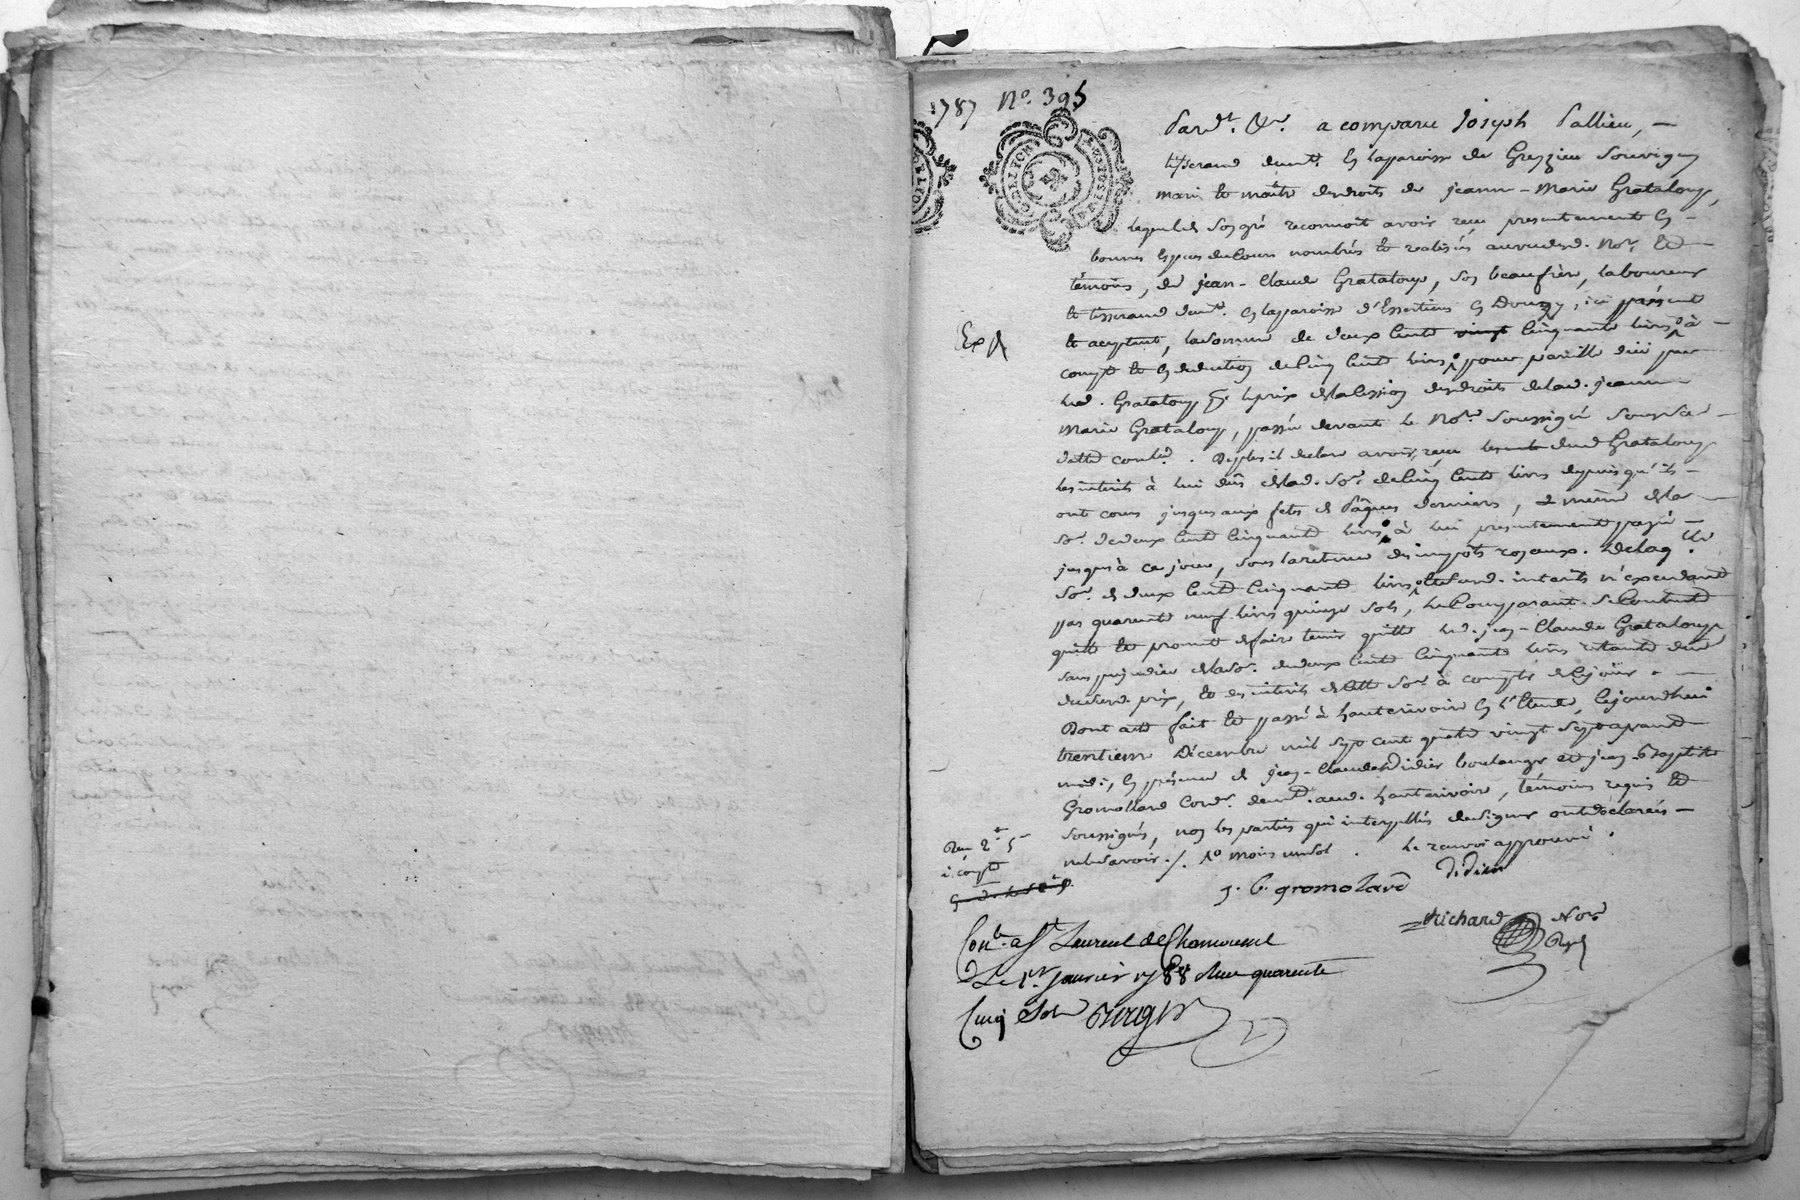 1787 No. 395
Pardt. &c. a comparu Joseph Pallieu, —
tisserand demt. en la paroisse de Grezzieu Souvigny
mari et maitre des droits de jeanne-Marie Grataloup,
lequel de son gré reconnoit avoir reçu presentement en —
bonnes espèces du cours nombrés et réalisés au vu dud. Nore. et
témoins, de jean-Claude Grataloup, son beaufrère, laboureur
et tisserand demt. en la paroisse d'Essertines en Donzy, ici présent
et aceptant, la somme de deux cent cinquante livres à —
compte et en deduction de cinq cent livres pour pareille due par
led. Grataloup pr. le prix de la cession des droits de lad. jeanne
Marie Grataloup, passée devant le Nore. soussigné sous sa
datte conlée. De plus il declare avoir reçu dud Grataloup
les intérêts à lui dûs de lad. Som. de cinq cent livres depuis qu'ils —
ont couru jusques aux fetes de Pâques derniers, et même de la —
Som. de deux cent cinquante livres à lui presentement payée —
jusqu'à ce jour, sous la retenue des impôts royaux. De laq. lle
Som. de deux cent cinquante livres et desd. interêts n'excedant
pas quarente neuf livres quinze sols, led Comparant se contente
quitte et promet de faire tenir quitte led. jean-Claude Grataloup
sans prejudice de la som. de deux cent cinquante livres restante due
du susd. prix, et des intérêts de cette Som. à compter de ce jour. —
Dont acte fait et passé à hauterivoire en l'étude, cejourdhui
trentieme Décembre mil sept cent quatre vingt sept avant
midi, en présence de jean-Claude Didier boulanger et jean-Baptiste
Gromollard Cord. demt. aud. hauterivoire, témoins requis et
soussignés, non les parties qui interpellés de signer ont déclarées —
ne le savoir ./. No moins un sol. le renvoi approuvé.
Exp
Reçu 2 5
à compte
Didier
j. b. gromolard
Richard Nore
Royal
Conle. a St. Laurent de Chamousset
Le 1er. janvier 1788 Reçu quarente
Cinq Sols